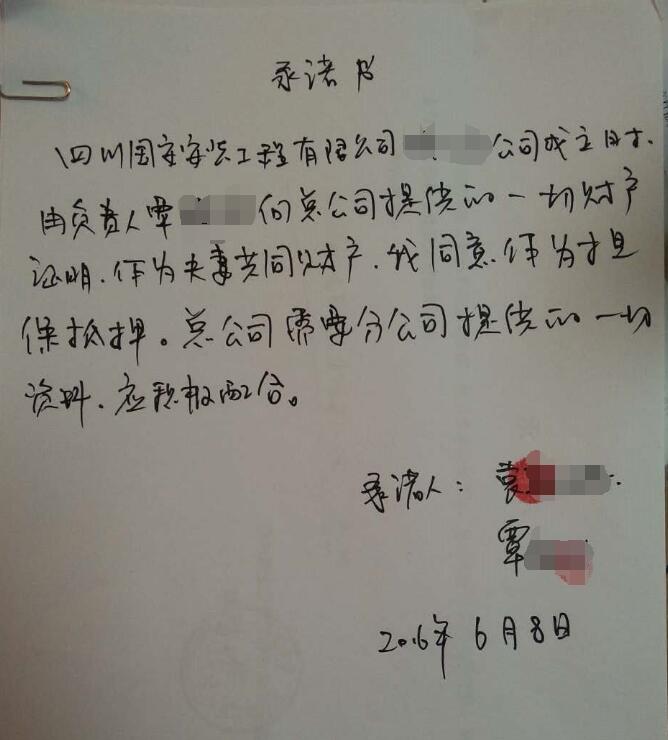 承诺书
四川国安安装工程有限公司 公司成立时、
由负责人覃 向总公司提供的一切财产
证明、作为夫妻共同财产、我同意作为担
保抵押。总公司需要分公司提供的一切
资料、应积极配合。
承诺人：袁
覃
2016年6月8日